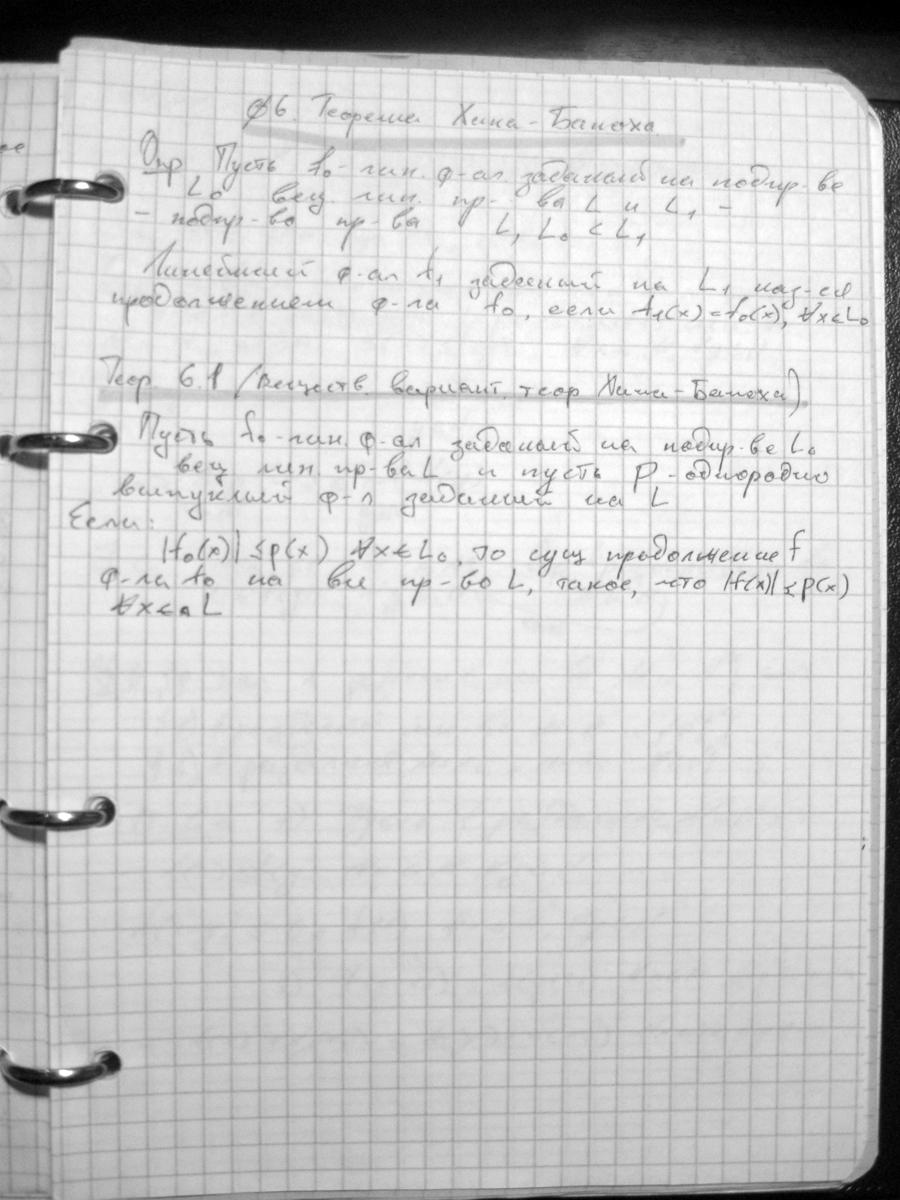 §6. Теорема Хана-Банаха.
Опр Пусть f₀-лин. ф-ал. заданый на подпр-ве
L₀ вещ. лин. пр-ва L и L₁ -
- подпр-во пр-ва L, L₀ < L₁
Линейный ф-ал f₁ заданый на L₁ наз-ся
продолжением ф-ла f₀, если f₁(x)=f₀(x), ∀x∈L₀
Теор. 6.1 (веществ. вариант. теор Хана-Банаха)
Пусть f₀-лин. ф-ал заданый на подпр-ве L₀
вещ лин. пр-ва L и пусть p-однородно
выпуклый ф-л заданый на L
Если:
|f₀(x)| ≤ p(x) ∀x∈L₀, то сущ продолжение f
ф-ла f₀ на все пр-во L, такое, что |f(x)| ≤ p(x)
∀x∈ L